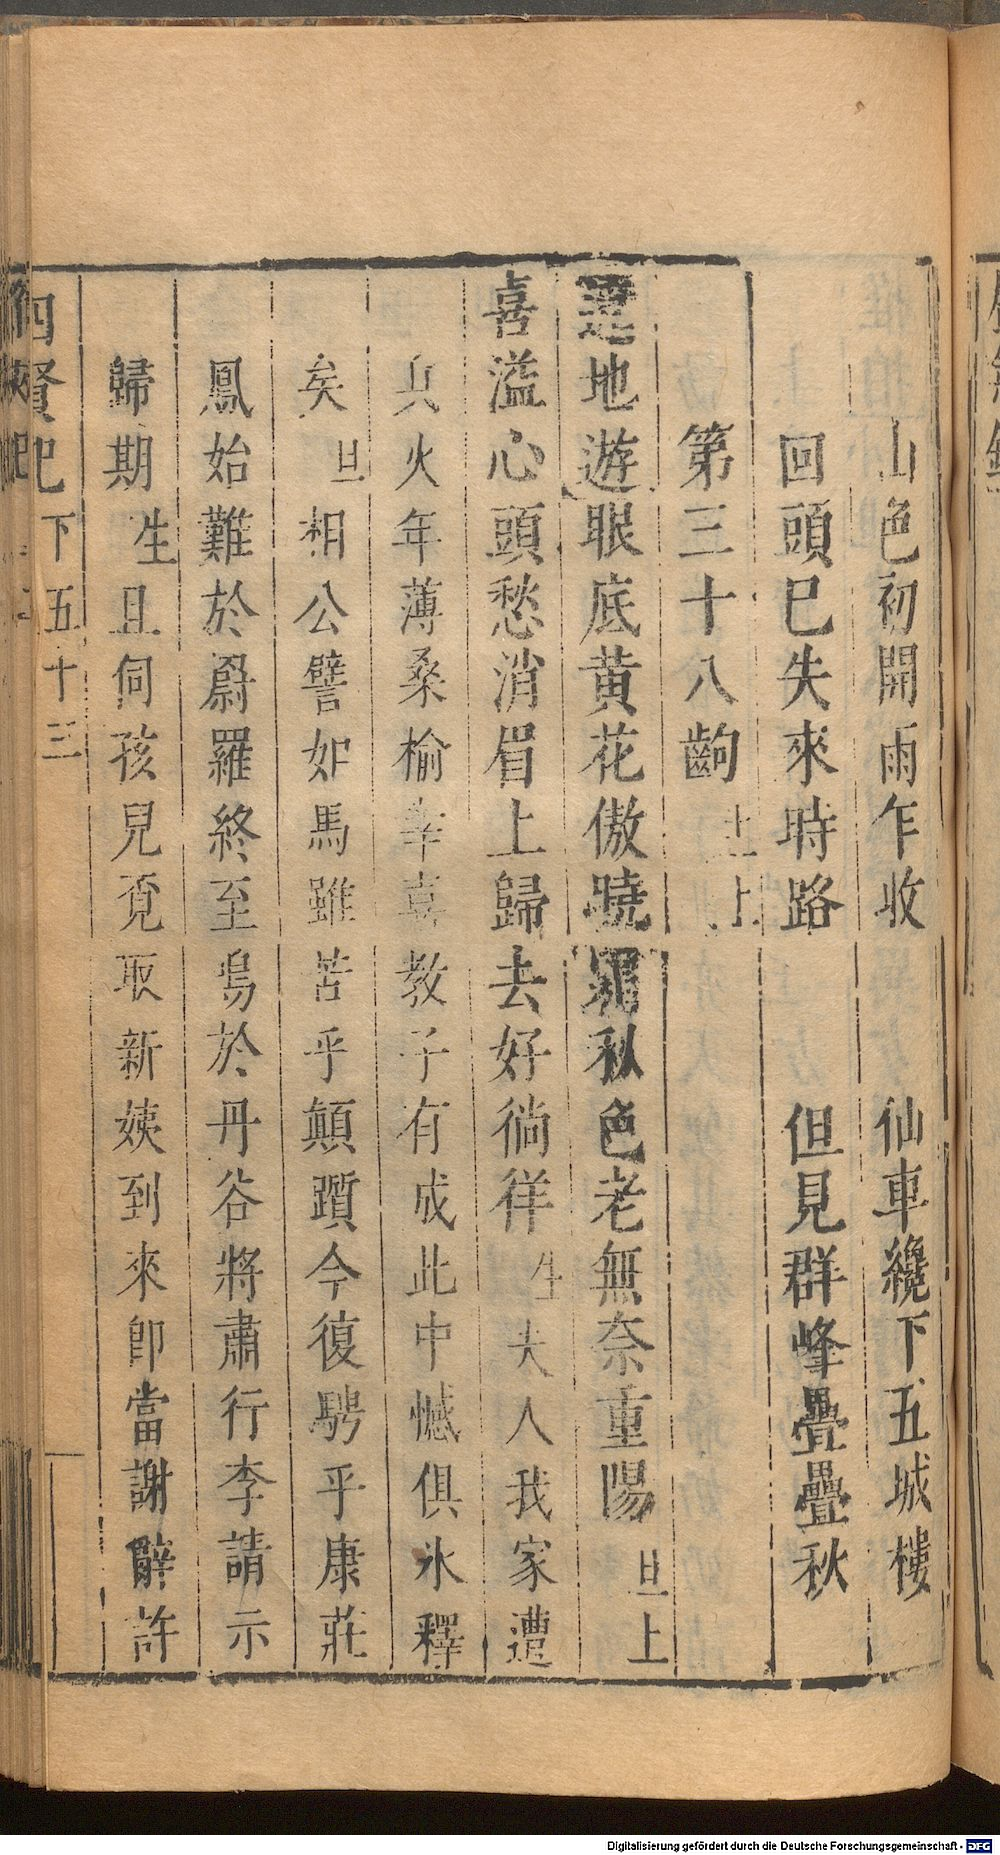 山色初開雨乍收　仙車纔下五城樓
回頭已失來時路　但見群峰疊疊秋
第三十八齣　生上
遶地遊眼底黃花傲曉霜秋色老無奈重陽旦上
喜溢心頭愁消眉上歸去好徜徉生夫人我家遭
兵火年薄桑榆幸喜教子有成此中憾俱氷釋
矣旦相公譬如馬雖苦乎顛躓今復騁乎康莊
鳳始難於罻羅終至於丹谷將肅行李請示
歸期生且伺孩兒覔取新姨到來卽當謝辭許
四賢記　下五十三
Digitalisierung gefördert durch die Deutsche Forschungsgemeinschaft - DFG